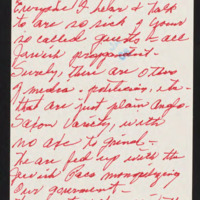 Everyone I hear & talk
to are so sick of your
so called guests & all
Jewish propaganda.
Surely, there are others
of media - politicians, etc
that are just plain Anglo-
Saxon Variety, with
no axe to grind -
We are fed up with the
Jewish Pacs monopolizing
Our government -